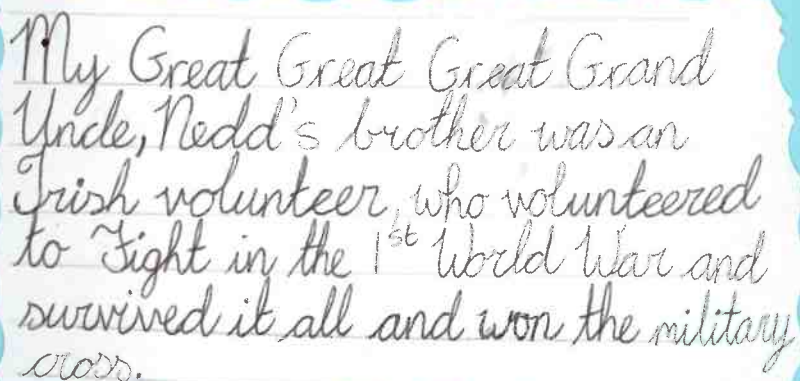 My Great Great Great Grand
Uncle, Nedd's brother was an
Irish volunteer, who volunteered
to Fight in the 1st World War and
survived it all and won the military
cross.